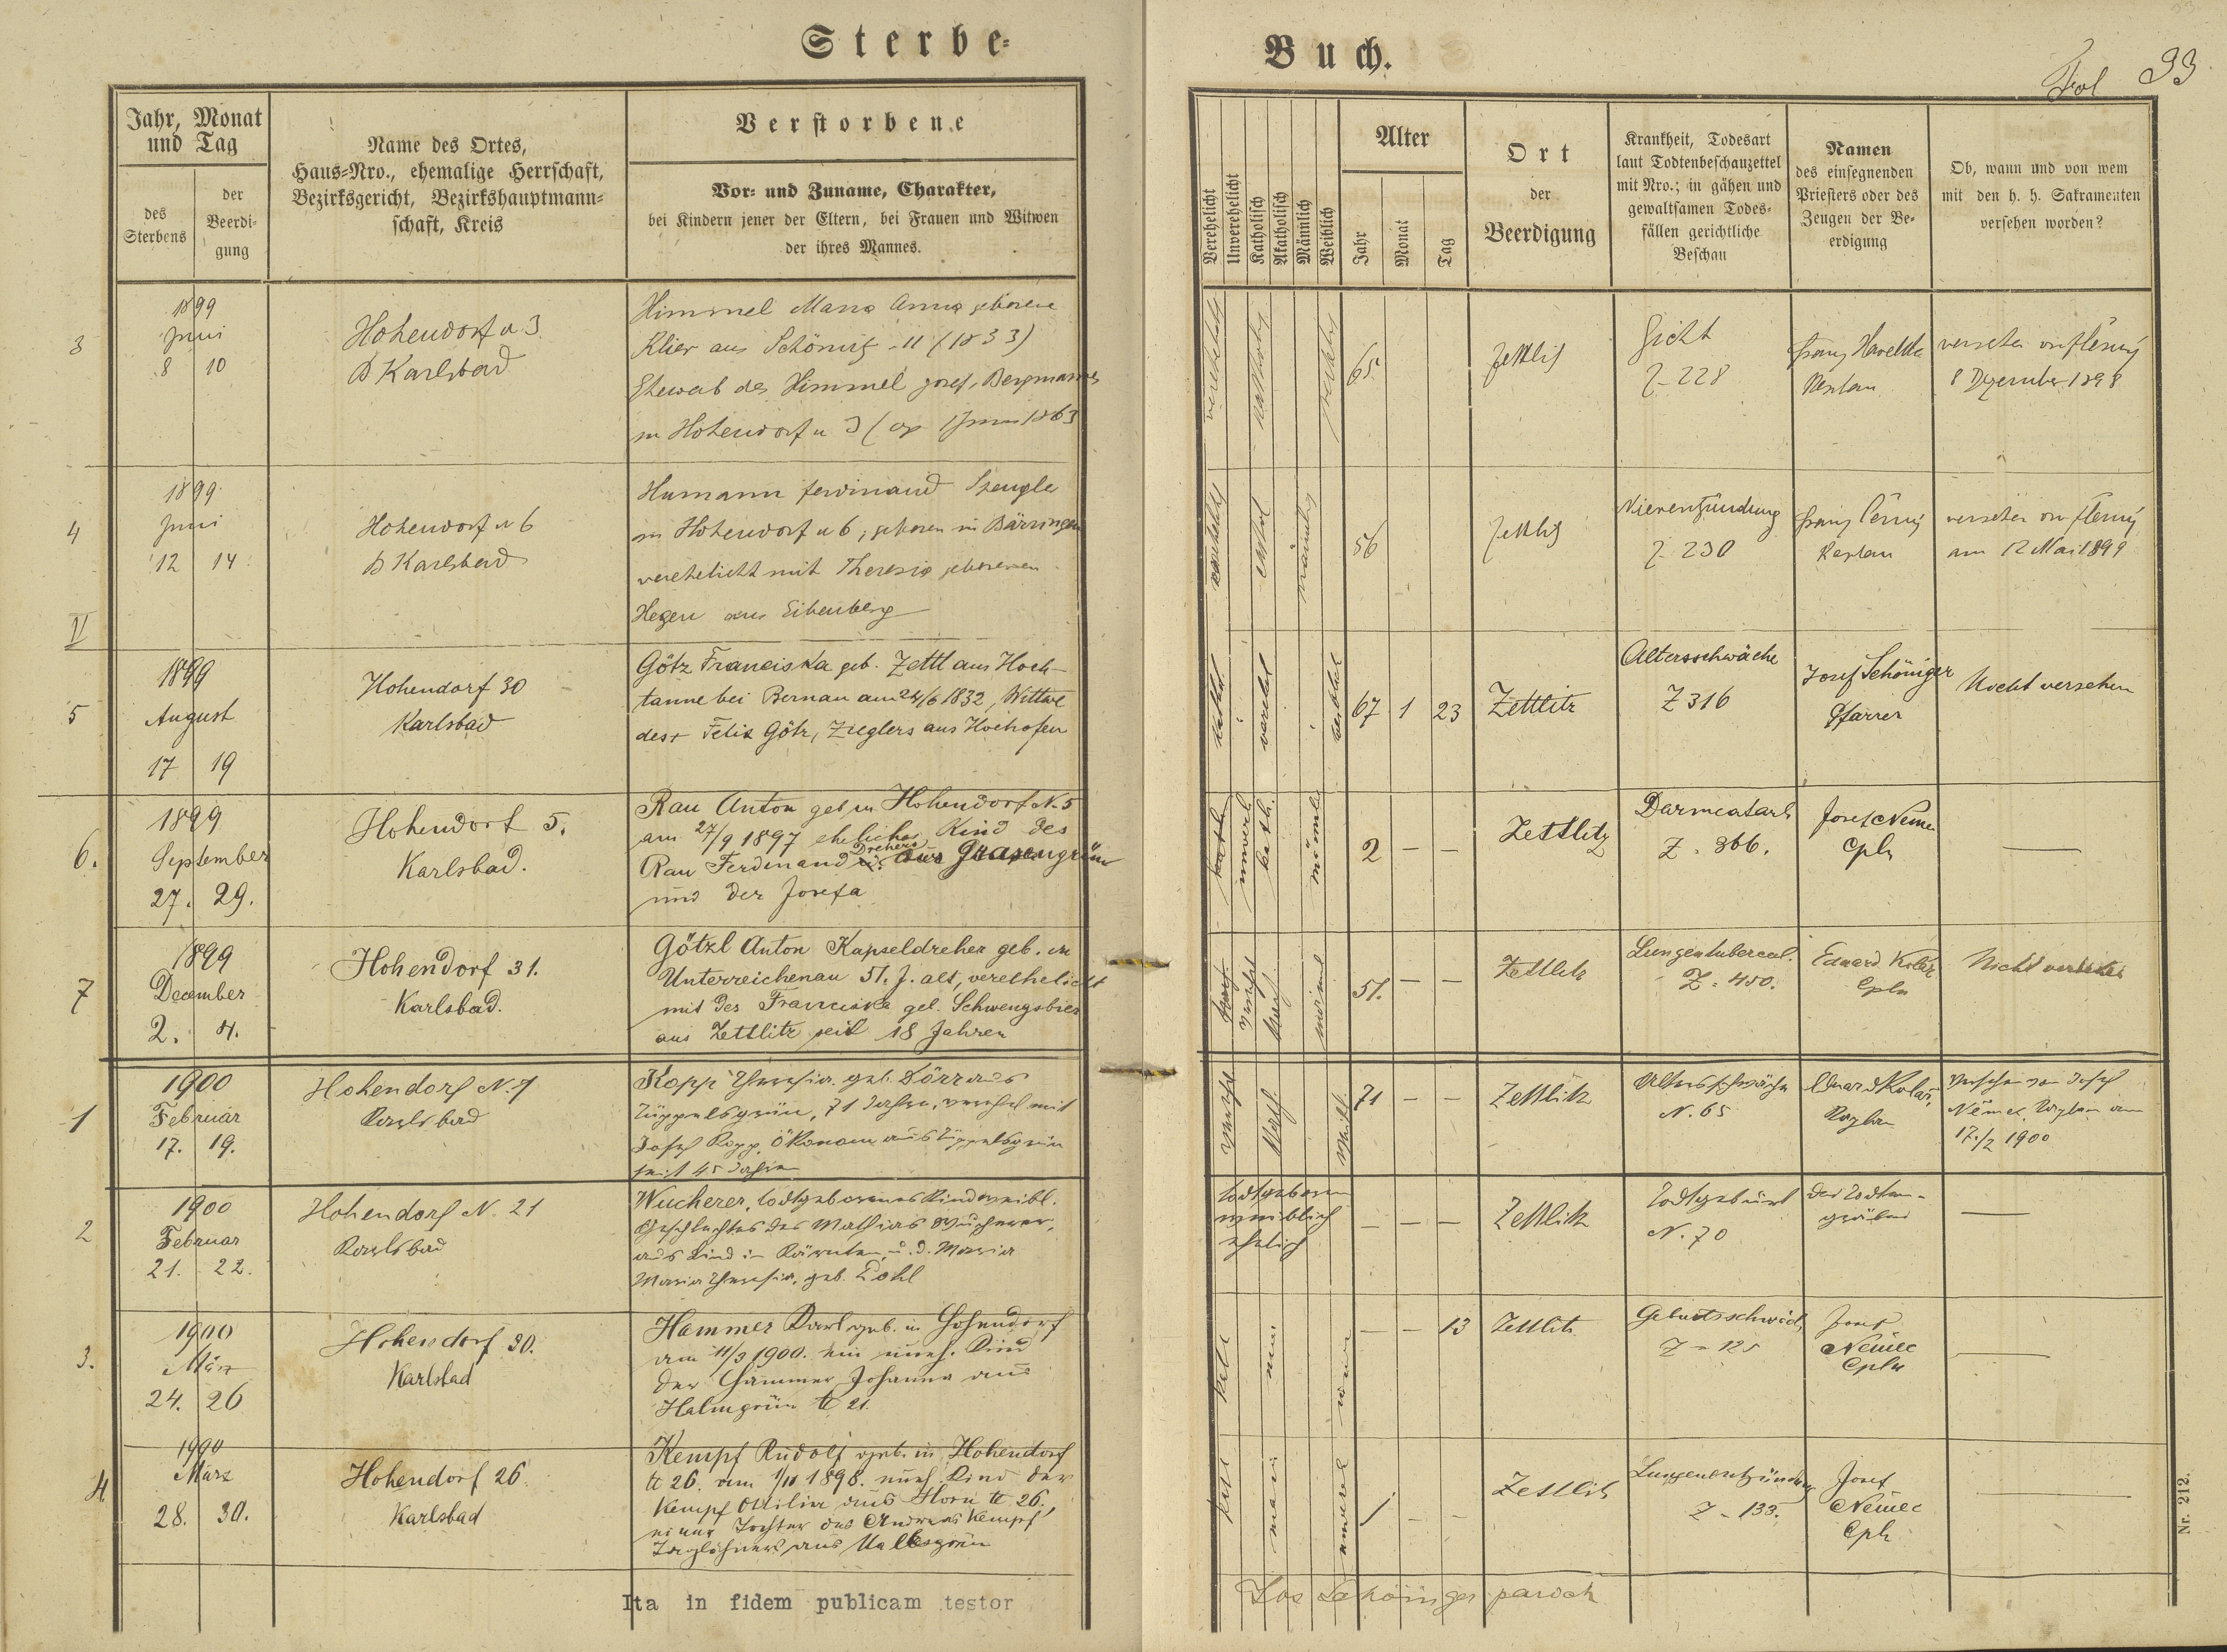 Sterbe-
Buch.
Fol 33
Jahr, Monat
und Tag
des
Sterbens
der
Beerdi-
gung
Name des Ortes,
Haus-Nro., ehemalige Herrschaft,
Bezirksgericht, Bezirkshauptmann-
schaft, Kreis
Verstorbene
Vor- und Zuname, Charakter,
bei Kindern jener der Eltern, bei Frauen und Witwen
der ihres Mannes.
Verehelicht
Unverehelicht
Katholisch
Akatholisch
Männlich
Weiblich
Alter
Jahr
Monat
Tag
Ort
der
Beerdigung
Krankheit, Todesart
laut Todtenbeschauzettel
mit Nro.; in gähen und
gewaltsamen Todes-
fällen gerichtliche
Beschau
Namen
des einsegnenden
Priesters oder des
Zeugen der Be-
erdigung
Ob, wann und von wem
mit den h. h. Sakramenten
versehen worden?
3
1899
Juni
8 10
Hohendorf n 3
B Karlsbad
Himmel Maria Anna geborene
Klier aus Schönig 11 (1833)
Eheweib des Himmel Josef, Bergmannes
in Hohendorf n 3 (cop 1 Juni 1863
65
Zettlitz
Gicht
Z 228
Franz Havelka
Kaplan
versehen
8 Dezember 1898
4
1899
Juni
12 14
Hohendorf n 6
B Karlsbad
Humann Ferdinand Spengler
in Hohendorf n 6, geboren in Bärringen
verehelicht mit Theresia geborenen
Heger aus Eibenberg
56
Zettlitz
Nierenzündung
Z 230
Franz Černý
Kaplan
versehen
am 12 Mai 1899
II
5
1899
August
17 19
Hohendorf 30
Karlsbad
Götz Franciska geb. Zettl aus Hoch-
tanne bei Bernau am 24/6 1832, Wittwe
des + Felix Götz, Zieglers aus Hochofen
67 1 23
Zettlitz
Altersschwäche
Z 316
Josef Schöniger
Pfarrer
Nicht versehen
6.
1899
September
27. 29.
Hohendorf 5.
Karlsbad.
Rau Anton geb in Hohendorf N. 5
am 27/9 1897 eheliches Kind des
Rau Ferdinand Drehers aus Grasengrün
und der Josefa
2 — —
Zettlitz
Darmcatarh
Z. 366.
Josef Němec
Cpln
—
7
1899
December
2. 4.
Hohendorf 31.
Karlsbad.
Götzl Anton Kapseldreher geb. in
Unterreichenau 51. J. alt, verethelicht
mit der Franciska geb. Schwengsbier
aus Zettlitz seit 18 Jahren
51. — —
Zettlitz
Lungentubercul.
Z. 450.
Eduard Kolár
Cpln
Nicht versehen
1
1900
Februar
17. 19.
Hohendorf N. 7
Karlsbad
Kopp Theresia. geb. Dörr aus
Züppelsgrün, 71 Jahre, verehel mit
Josef Kopp, Ökonom aus Züppelsgrün
seit 45 Jahren
71 — —
Zettlitz
Altersschwäche
N. 65
Eduard Kolář
Kaplan
Versehen von Josef
Němec Kaplan am
17./2 1900
2
1900
Februar
21. 22.
Hohendorf N. 21
Karlsbad
Wucherer, todtgeborenes Kind weibl.
Geschlechtes des Mathias Wucherer,
aus Lind in Kärnten, u. d. Maria
Maria Theresia, geb. Pohl
todtgeboren
weiblich
ehelich
— — —
Zettlitz
Todtgeburt
N. 70
Der Todten-
gräber
—
3.
1900
März
24. 26
Hohendorf 30.
Karlsbad
Hammer Karl geb. in Hohendorf
am 11/3 1900. ein uneh. Kind
der Hammer Johanna aus
Halmgrün N 21.
— — 13
Zettlitz
Geburtsschwäch
Z - 125
Josef
Němec
Cpln
—
4
1900
März
28. 30.
Hohendorf 26
Karlsbad
Kempf Rudolf geb. in Hohendorf
N 26. am 1/11 1898. uneh. Kind der
Kempf Ottilia aus Horn N 26.,
einer Tochter des Andreas Kempf
Taglöhners aus
1 - -
Zettlitz
Lungenentzündung
Z - 133.
Josef
Němec
Cpln
—
Ita in fidem publicam testor
Jos Schöniger paroch
Nr. 212.